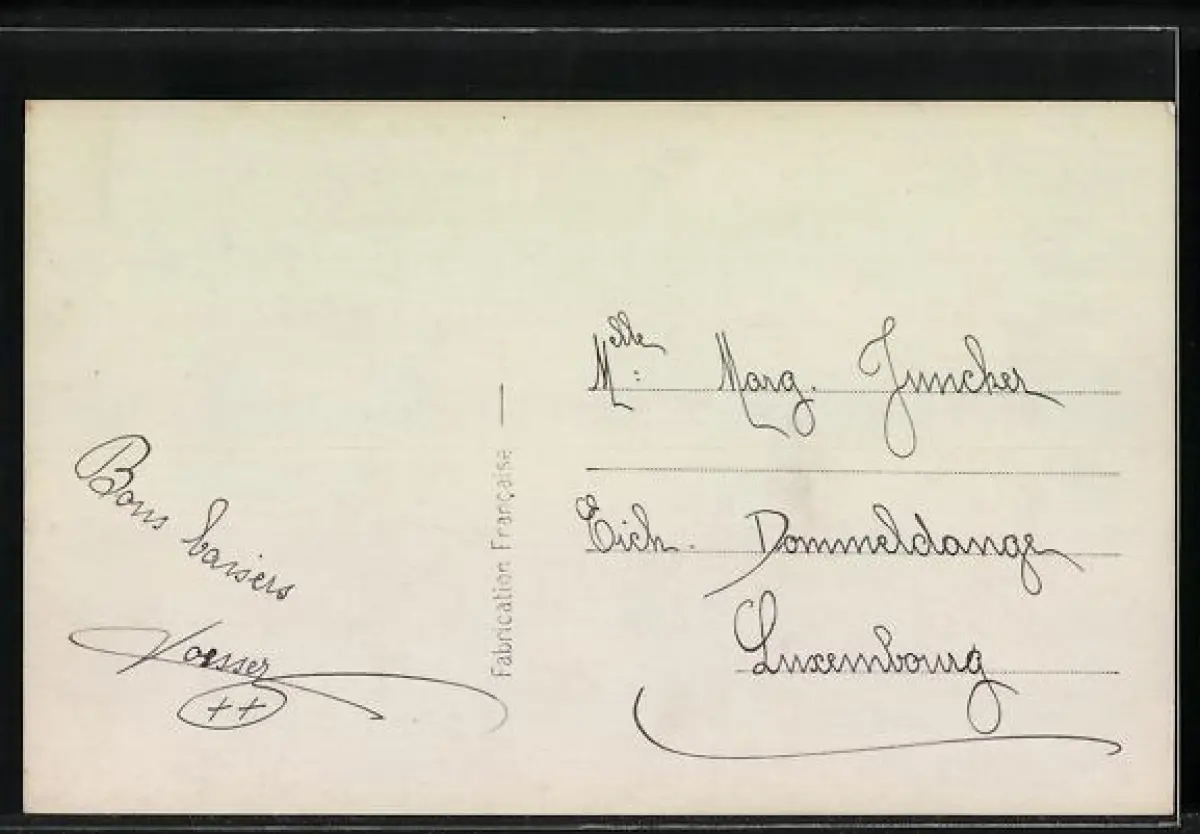 Bons baisers
++
Fabrication Française
Melle: Marg. Juncker
Eich. Dommeldange
Luxembourg